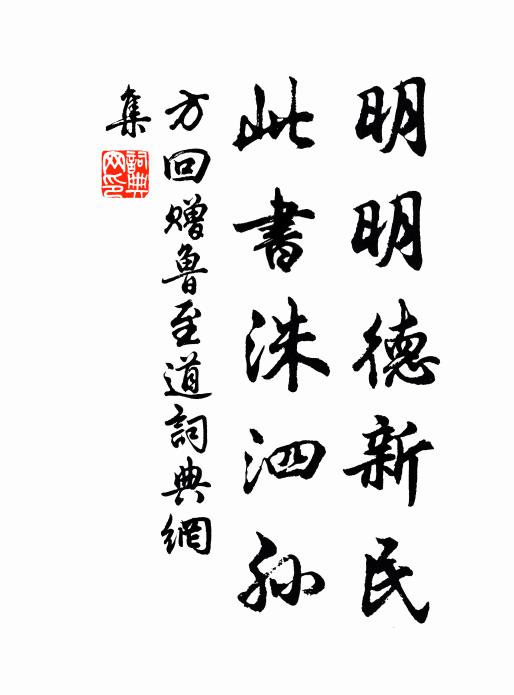 明明德新民
此書洙泗孫
方回贈魯至道詞典網
集
詞典网印